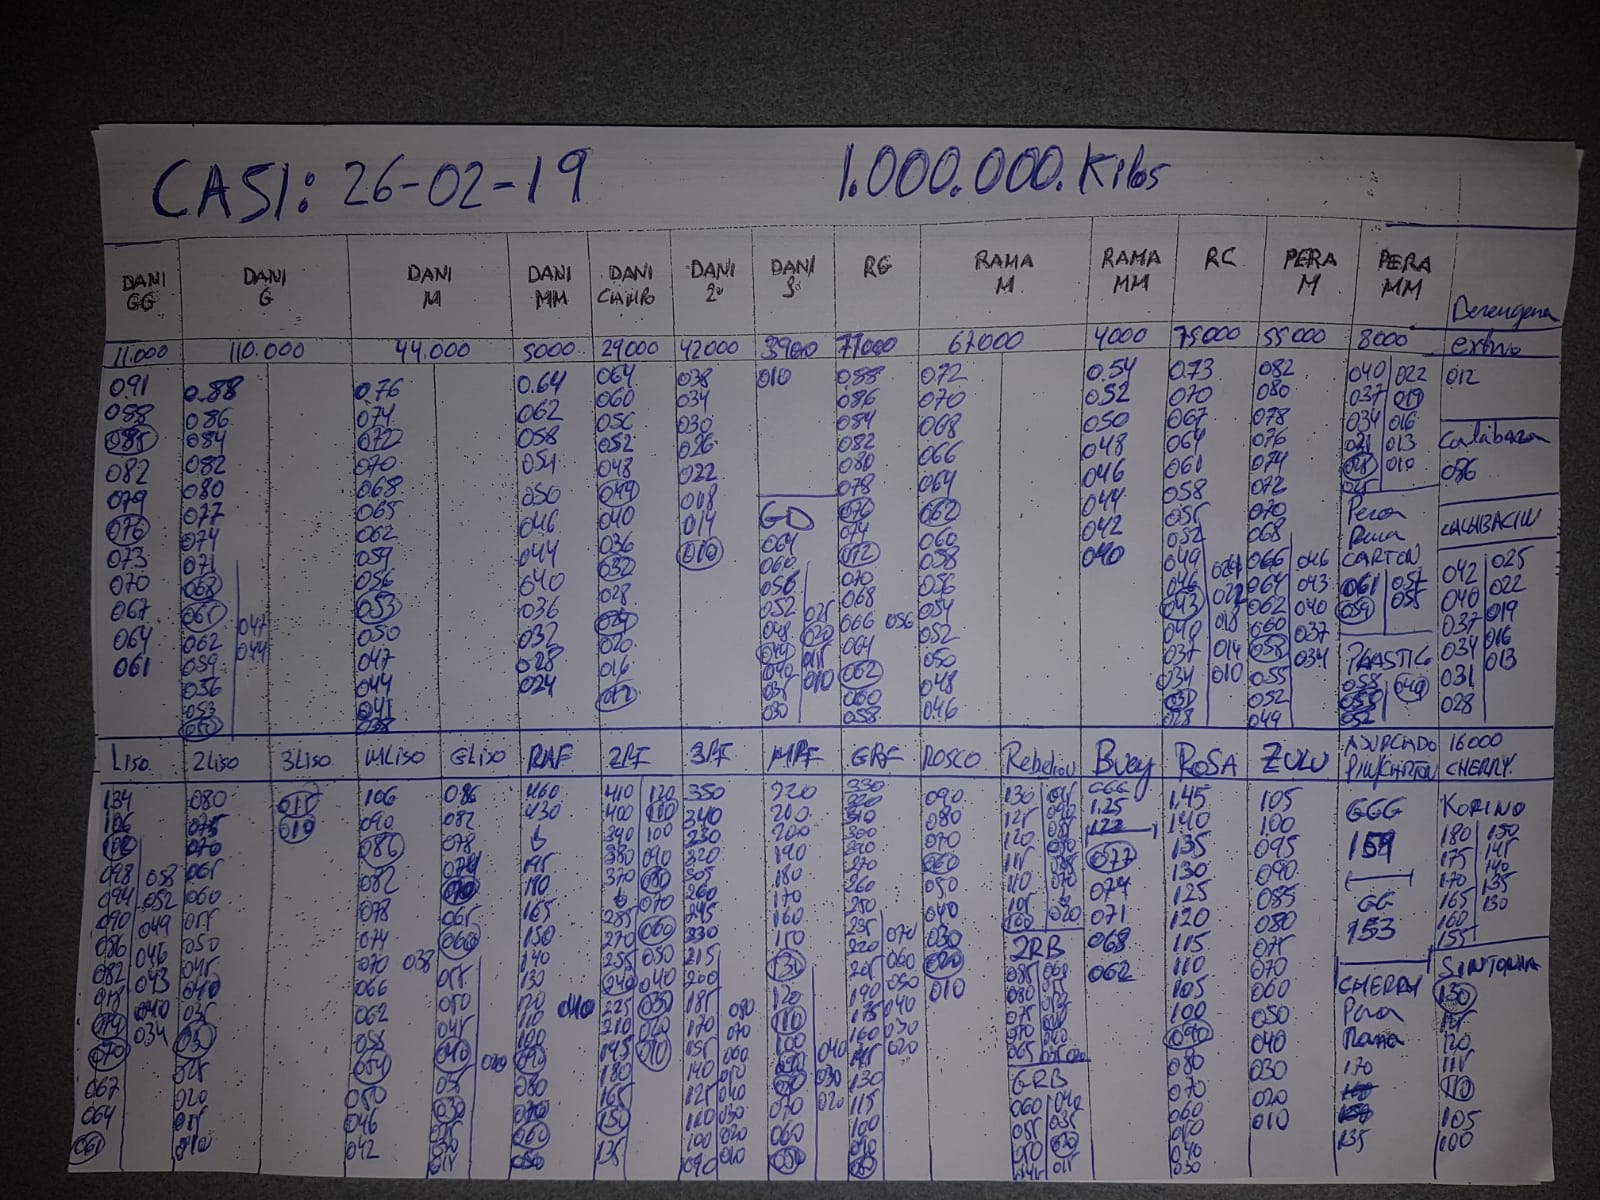 CASI: 26-02-19 1.000.000. Kilos
DANI GG
DANI G
DANI M
DANI MM
DANI CAMPO
DANI 2ª
DANI 3ª
RG
RAMA M
RAMA MM
RC
PERA M
PERA MM
Berengena
11.000 110.000 44.000 5000 29000 42000 3900 77000 67000 4000 75000 55000 8000 extra
091 0.88 0.76 0.64 064 038 010 0.88 0.72 0.54 0.73 082 040 022 012
088 086 074 062 060 034 086 070 0.52 070 080 037 019
085 084 072 058 056 030 084 068 050 067 078 034 016 Calabaza
082 082 070 054 052 026 082 066 048 064 076 031 013
079 080 068 050 048 022 080 064 046 061 074 028 010 086
076 077 065 046 044 018 078 062 044 058 072 025
073 074 062 044 040 014 GD 076 060 042 055 070 Pera CALABACIN
070 071 059 040 036 010 064 074 058 040 052 068 Rama
067 068 056 036 032 060 072 056 049 024 066 046 CARTON 042 025
064 065 053 032 028 056 070 054 046 022 064 043 061 057 040 022
061 062 047 050 028 024 052 025 068 052 043 018 062 040 059 055 037 019
059 044 047 024 020 048 020 066 056 050 040 014 060 037 034 016
056 044 016 044 015 064 048 037 010 058 034 PLASTICO 031 013
053 041 012 040 010 062 046 034 055 058 049 028
050 038 035 060 031 052 055
030 058 028 049 052
Liso 2Liso 3Liso MLiso GLiso RAF 2RF 3RF MRF GRF ROSCO Rebelion Buey ROSA ZULU ASURCADO PIN/CARTON 16000 CHERRY
134 080 015 106 086 460 410 120 350 220 330 090 130 GGG 1.45 105 GGG KORINO
106 075 010 090 082 430 400 110 340 210 320 080 125 1.25 140 100 159 180 150
102 070 086 078 390 100 330 200 310 070 120 122 135 095 175 145
098 058 065 082 074 195 380 090 320 190 300 060 115 077 130 090 GG 170 140
094 052 060 078 070 180 370 080 305 180 290 050 110 074 125 085 153 165 135
090 049 055 074 065 165 285 070 260 170 270 040 105 071 120 080 160 130
086 046 050 070 038 060 150 270 060 245 160 260 030 100 020 068 115 075 155
082 043 045 066 055 140 255 050 230 150 250 020 2RB 062 110 070 CHERRY SINTONIA
078 040 040 062 050 130 240 040 215 130 235 070 010 105 060 Pera 130
074 034 035 058 045 120 040 225 030 200 120 220 060 100 050 Rama 125
070 030 054 040 020 110 210 020 185 080 110 205 050 090 040 170 120
067 025 050 035 100 195 010 170 070 100 190 040 080 030 115
064 020 046 030 090 180 155 060 090 040 175 030 070 020 110
061 015 042 025 080 165 140 050 080 030 160 020 GRB 060 010 135 105
010 020 070 150 125 040 070 020 145 060 040 050 100
015 060 135 110 030 060 130 055 035 040
050 100 020 050 115 050 020 030
090 010 100 045 015
090
080